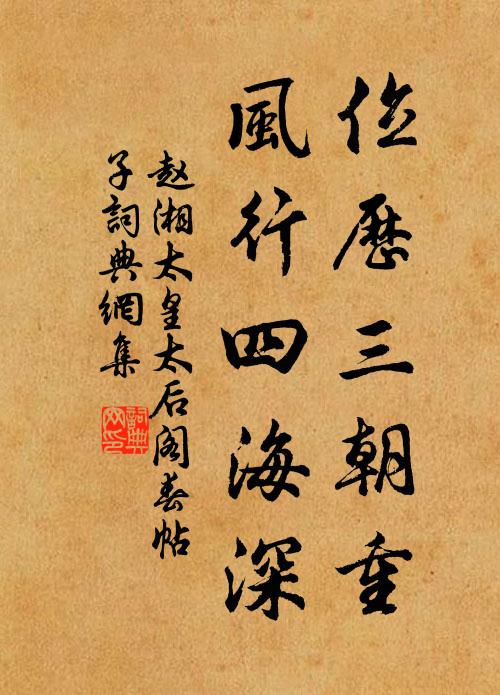 位歷三朝重
風行四海深
趙湘太皇太后阁春帖
子詞典網集
詞典
网印